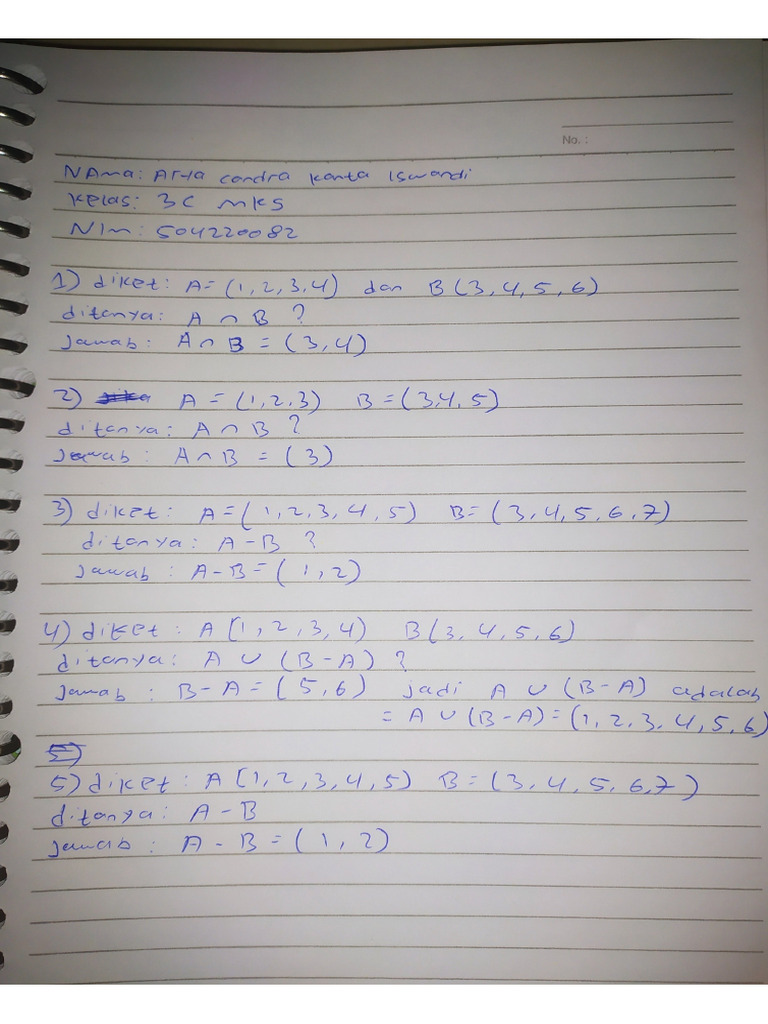 No. :
NAma: Arya candra kanta Iswandi
kelas: 3C MKS
NIM: 504220082
1) diket: A= (1,2,3,4) dan B (3,4,5,6)
ditanya: A ∩ B ?
Jawab: A ∩ B = (3,4)
2) A = (1,2,3) B = (3,4,5)
ditanya: A ∩ B ?
Jawab: A ∩ B = (3)
3) diket: A = (1,2,3,4,5) B= (3,4,5,6,7)
ditanya: A - B ?
Jawab: A - B = (1,2)
4) diket: A [1,2,3,4) B (3,4,5,6)
ditanya: A ∪ (B-A) ?
Jawab: B-A = (5,6) jadi A ∪ (B-A) adalah
= A ∪ (B-A) = (1,2,3,4,5,6)
5)
5) diket: A [1,2,3,4,5) B = (3,4,5,6,7)
ditanya: A - B
Jawab: A - B = (1,2)